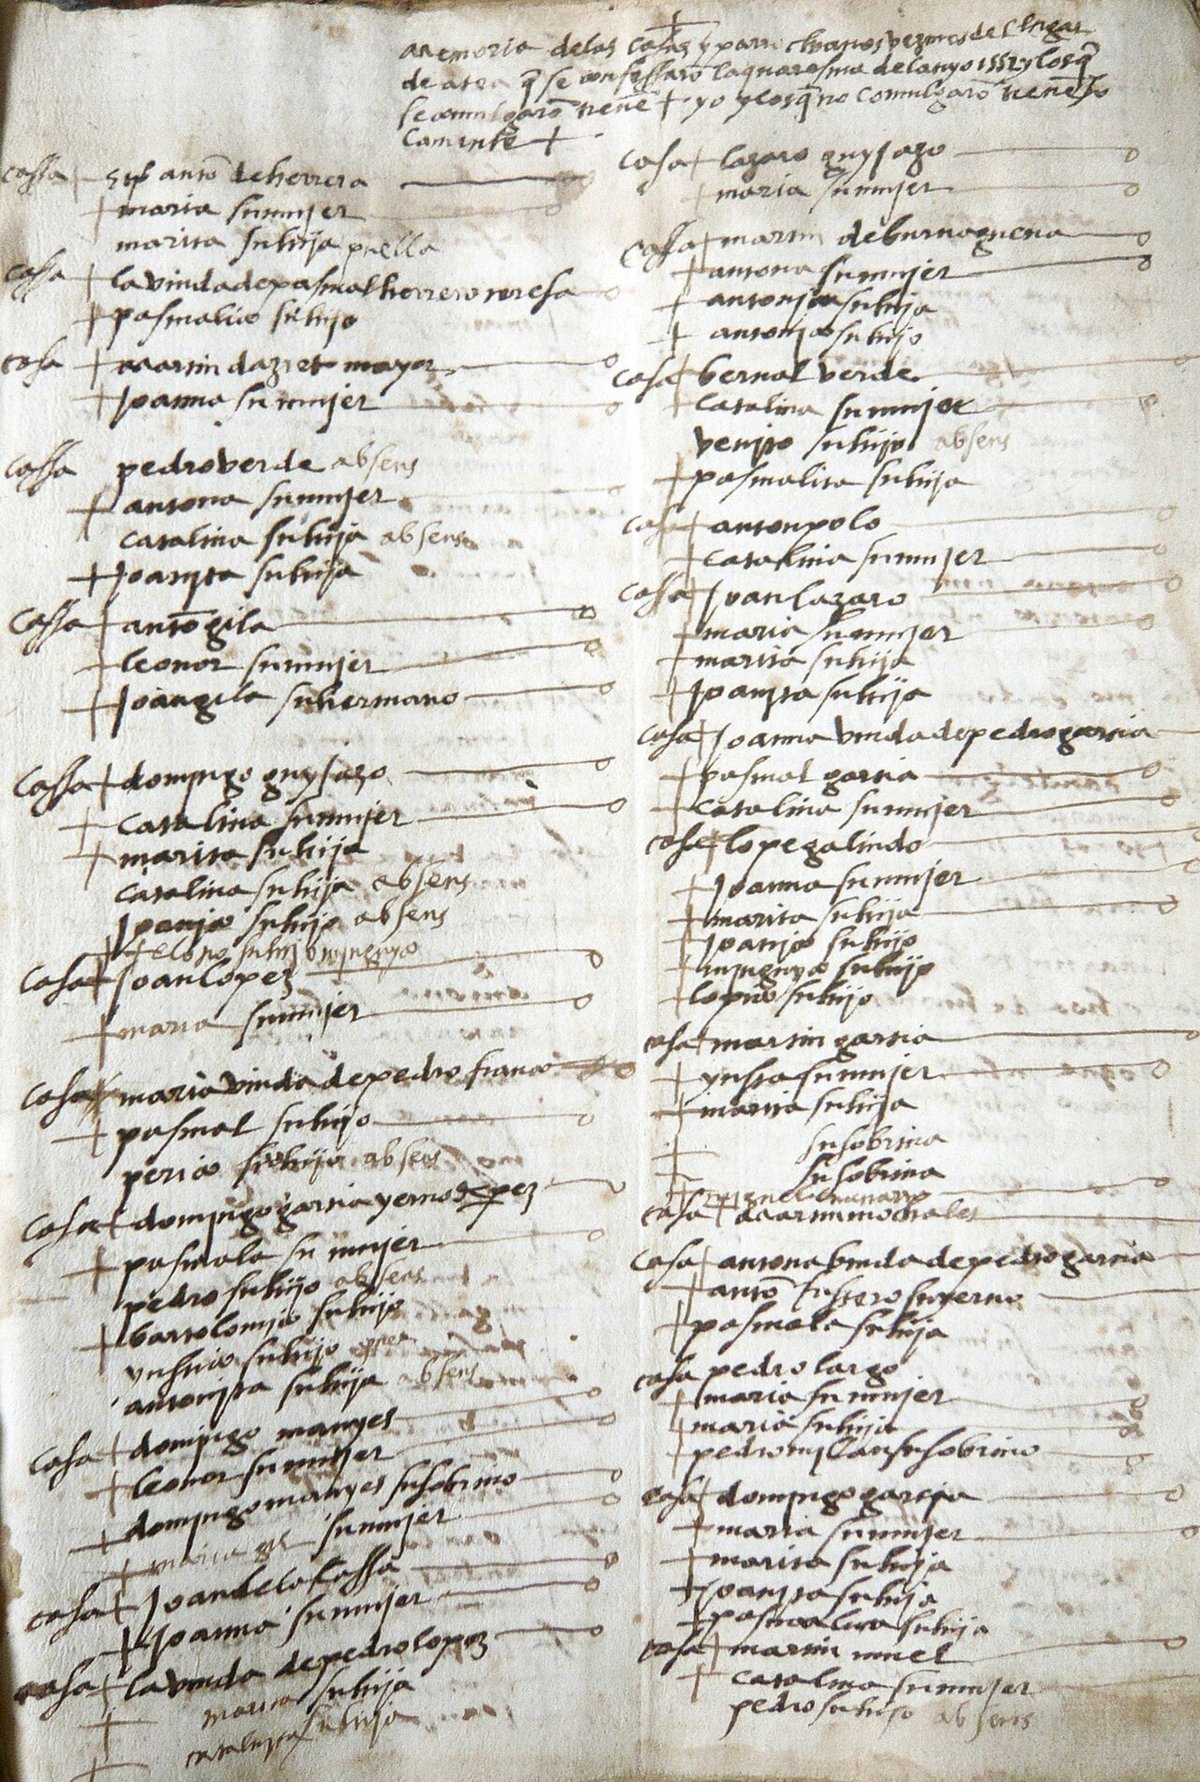 memoria de las casas y parrochianos vezinos del lugar
de atea q se confessaron la quaresma del anyo 1552 y los q
se comulgaron tiene + yo y los q no comulgaron tiene
camente +
cassa anto de herrera
maria su mujer
marita su hija puella
cassa la viuda de pasqual herrero
pasqualico su hijo
casa martin dazret mayor
Joanna su mujer
cassa pedro verde absens
antona su mujer
catalina su hija absens
Joanyta su hija
cassa anto gila
leonor su mujer
Joan gila su hermano
cassa domyngo guysazo
catalina su mujer
marita su hija
catalina su hija absens
Joanjco su hijo absens
su hijo
casa Joan lopez
maria su mujer
casa maria viuda de pedro franco
pasqual su hijo
perico su hijo absens
casa domyngo garcia yerno
pasquala su mujer
pedro su hijo absens
bartolomjco su hijo
su hijo
antonjta su hija absens
casa domyngo manyes
leonor su mujer
domyngo manyes su sobrino
maria su mujer
casa Joan de la Cassa
Joanna su mujer
casa la viuda de pedro lopez
maria su hija
catalyna su hija
casa lazaro guysazo
maria su mujer
cassa martin de burvaguena
antona su mujer
antonja su hija
antonjco su hijo
casa bernal verde
catalina su mujer
venjto su hijo absens
pasqualita su hija
casa anton polo
catalina su mujer
cassa Juan lazaro
maria su mujer
marita su hija
Joanyta su hija
casa Joanna viuda de pedro garcia
pasqual garcia
catalina su mujer
casa lope galindo
Joanna su mujer
marita su hija
Joanjco su hijo
su hijo
lopico su hijo
casa martin garcia
ynsta su mujer
marita su hija
su sobrina
su sobrina
miguel navarro
casa martin morales
casa antona viuda de pedro garcia
anto fustero su yerno
pasquala su hija
casa pedro largo
maria su mujer
maria su hija
pedro myllan su sobrino
casa domyngo garcia
maria su mujer
marita su hija
Joanyta su hija
pasqualica su hija
casa martin muel
catalina su mujer
pedro su hijo absens